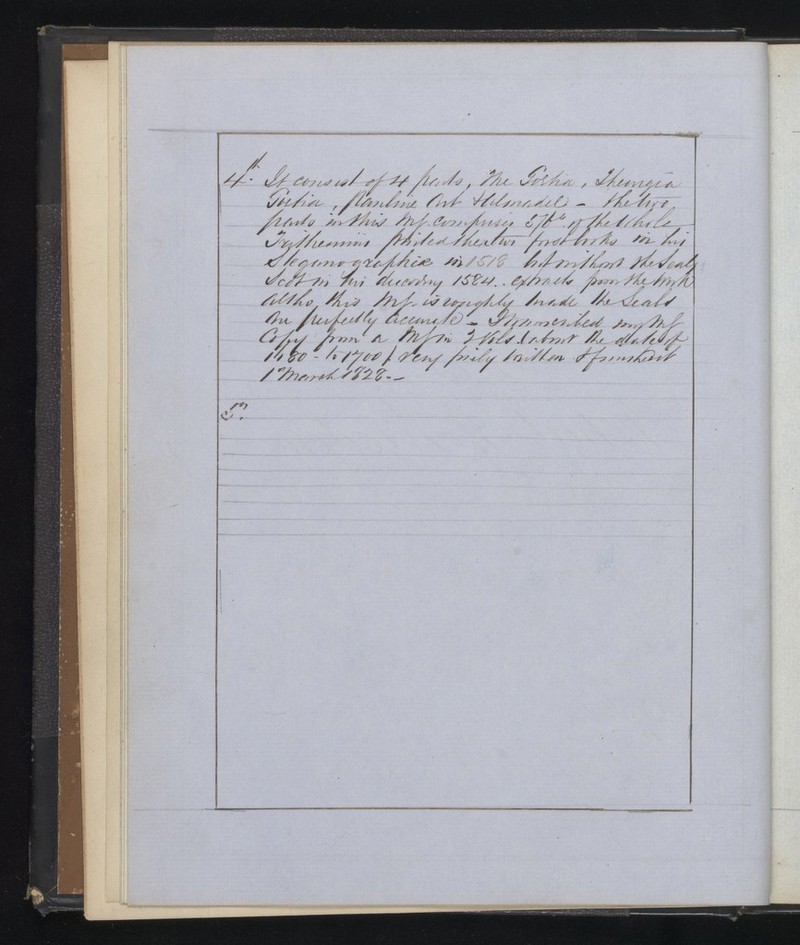 4th. It consist of 4 parts, the Goetia, Theurgia
Goetia, Pauline Art & Almadel - the two
parts in this Ms. comprise of the whole
Trithemius printed the two first books in his
Steganographia in 1518 but without the Seals
Scot in his discovery 1584 .. extracts from the work
altho this Ms. is roughly made the Seals
are perfectly accurate - I transcribed my Ms
Copy from a Ms in 2 Vols. (about the date of
to 1700) very written & finished it
1 March 1828.-
5th.